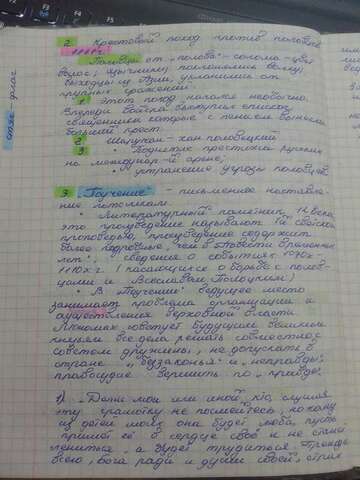 2. Крестовый поход против половцев
1111 г.
Половцы от "полова" - солома - цвет
волос, язычники, поклонялись волку,
выходцы из Азии, уклонялись от
трудных сражений
1 Этот поход начался необычно.
Впереди войска выступил епископ,
священники которые с пением вынесли
большой крест.
2 Шарукан - хан половецкий
3 • Поднятие престижа русских
на междунар-й арене;
• устранение угрозы половцев.
стяг - флаг
3. "Поучение" - письменное наставле-
ние потомкам.
• Литературный памятник 12 века
это произведение называют 1й светской
проповедью, произведение содержит
более подробные, чем в "Повести временных
лет", сведения о событиях 1070х-
1110х г. (касающихся о борьбе с полов-
цами и Всеславом Полоцким)
• В "Поучении" ведущее место
занимает проблема организации и
осуществления верховной власти
Мономах советует будущим великим
князьям все дела решать совместно с
советом дружины, не допускать в
стране "беззаконья" и "неправды",
правосудие вершить по "правде".
1) "Дети мои или иной кто, слушая
эту грамотку не посмейтесь, но кому
из детей моих она будет люба, пусть
примет её в сердце своё и не станет
лениться, а будет трудиться. Прежде
всего, бога ради и души своей, страх